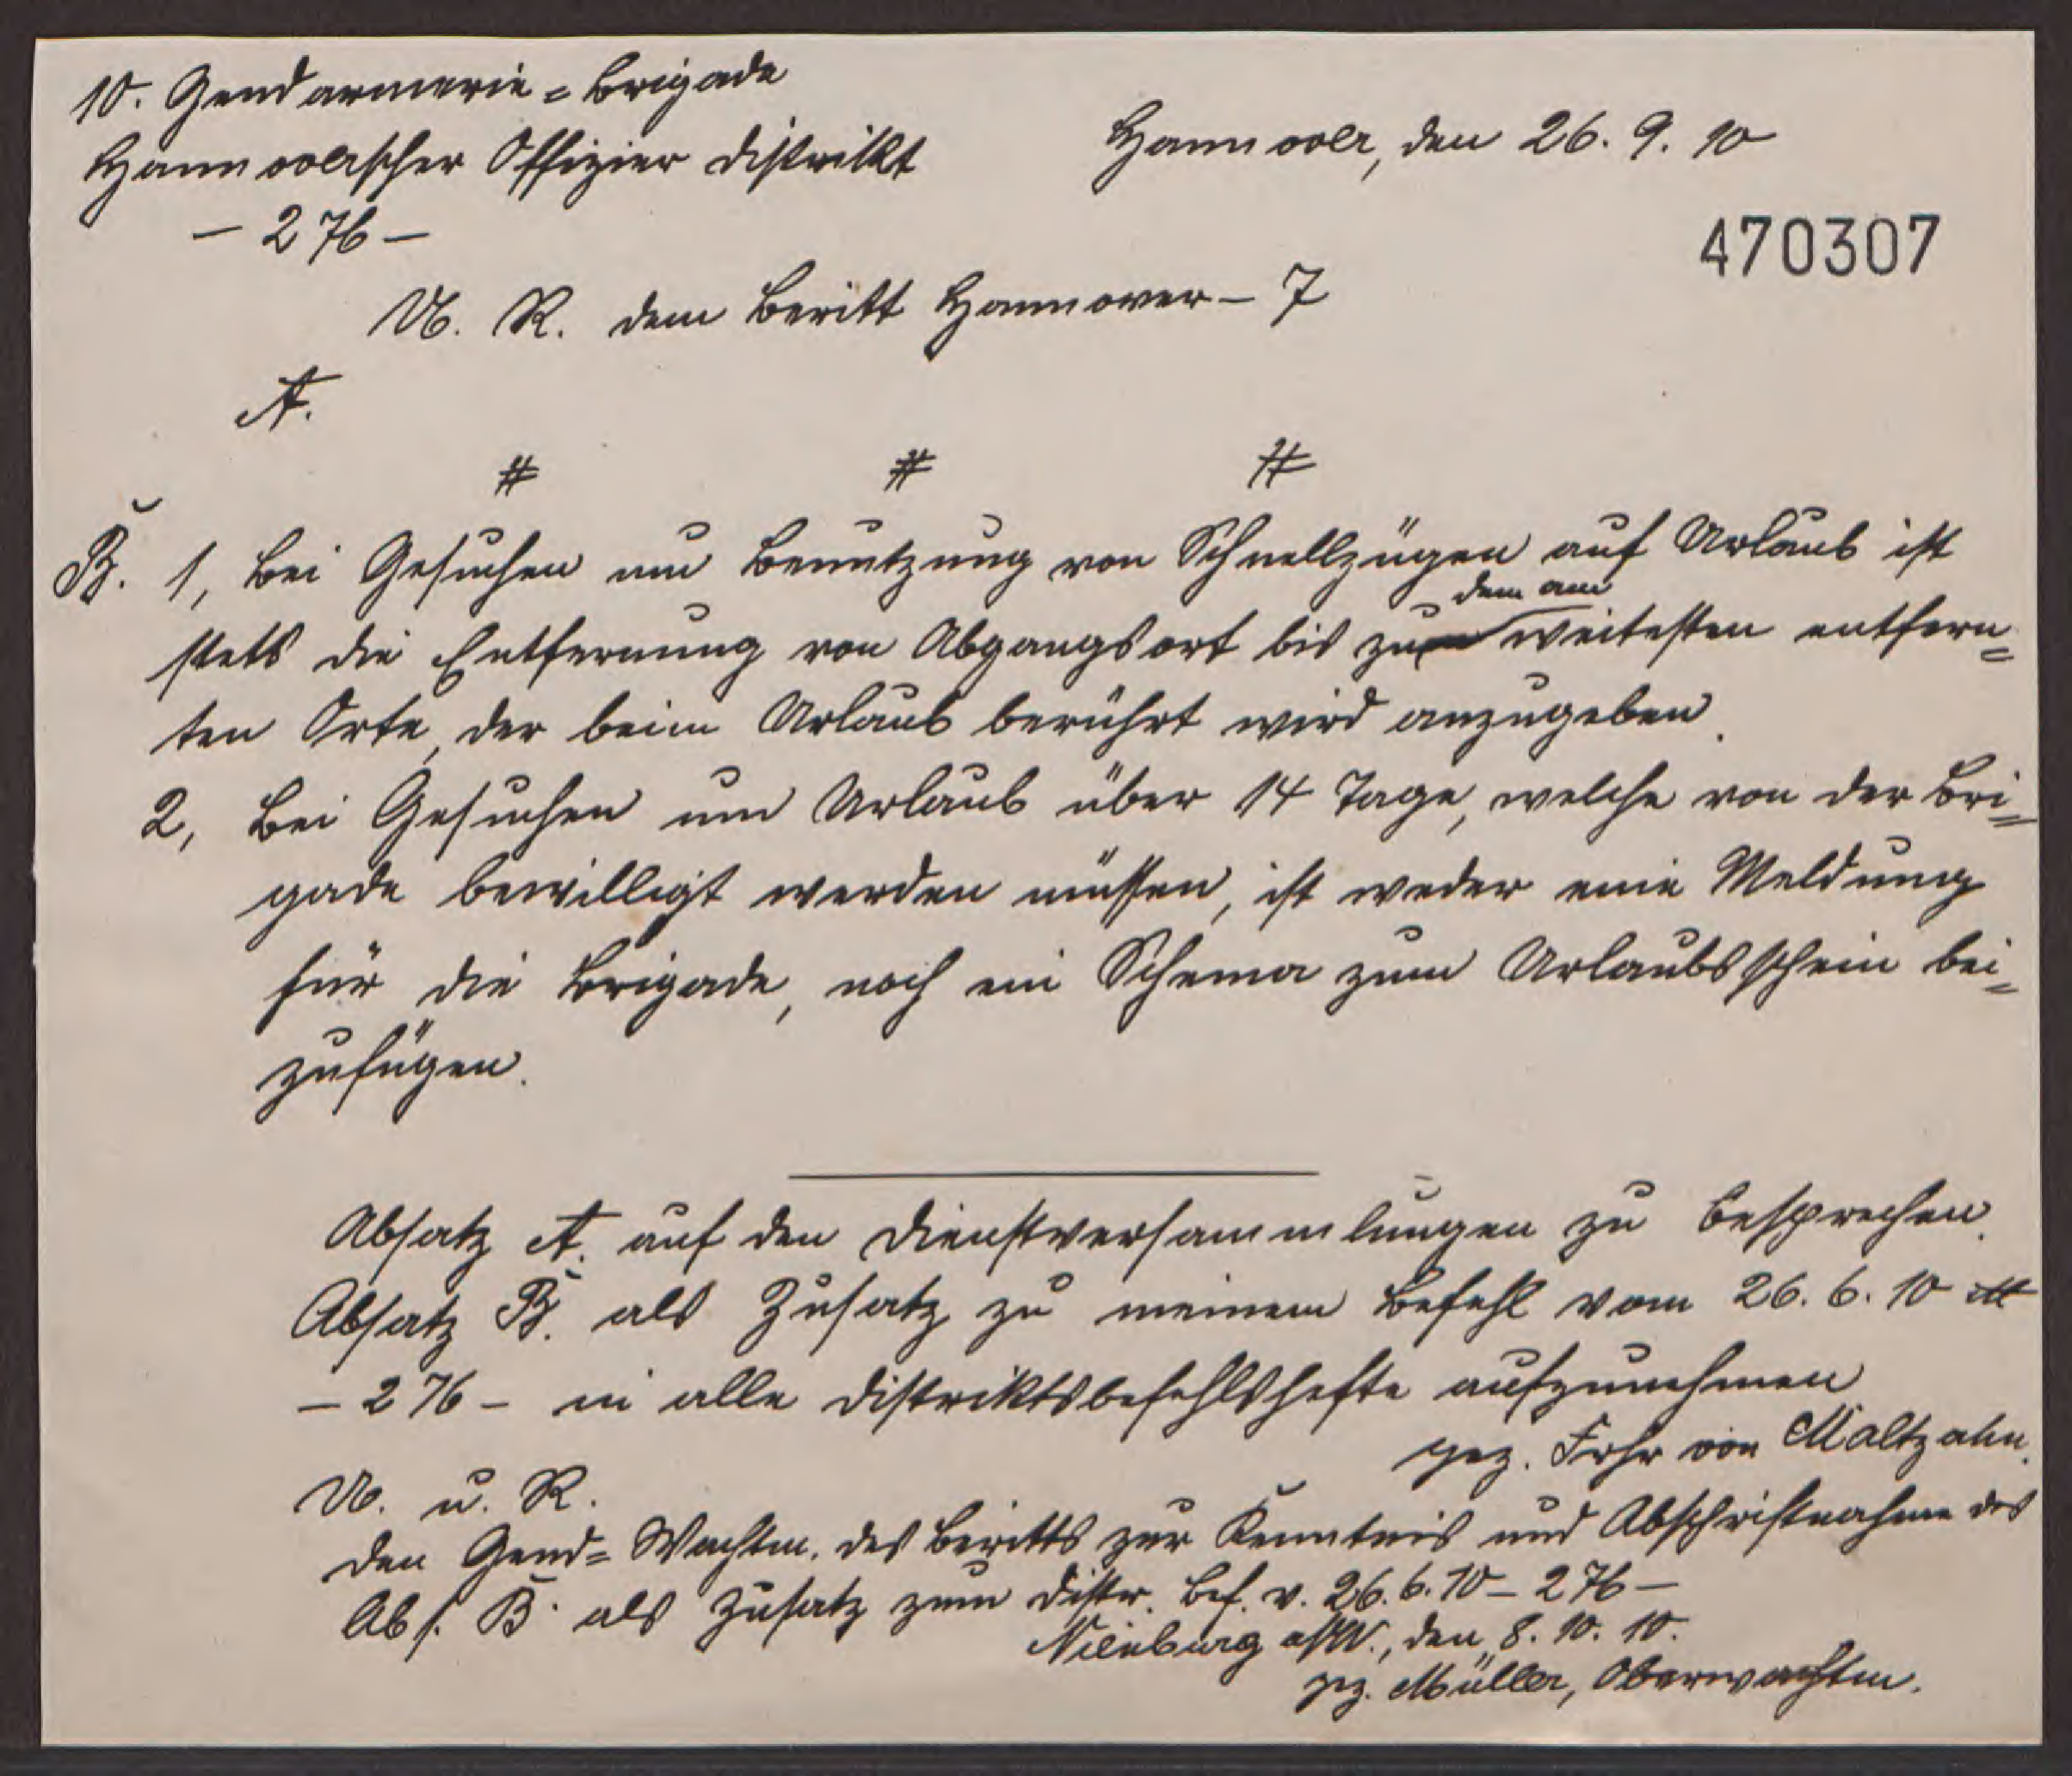 10. Gendarmerie=Brigade
Hannoverscher Offizier Distrikt
Hannover, den 26. 9. 10
– 276 –
470307
U. R. dem Beritt Hannover – 7
A.
# # #
B. 1, Bei Gesuchen um Benutzung von Schnellzügen auf Urlaub ist
dem am
stets die Entfernung von Abgangsort bis zu weitesten entfern=
ten Orte, der beim Urlaub berührt wird anzugeben.
2, Bei Gesuchen um Urlaub über 14 Tage, welche von der Bri=
gade bewilligt werden müssen, ist weder eine Meldung
für die Brigade, noch ein Schema zum Urlaubsschein bei=
zufügen.
Absatz A. auf den Dienstversammlungen zu besprechen.
Absatz B. als Zusatz zu meinem Befehl vom 26. 6. 10
– 276 – in alle Distriktsbefehlshefte aufzunehmen
gez. Frhr von Maltzahn.
U. u. R.
den Gend= Wachtm. des Beritts zur Kenntnis und Abschriftnahme des
Abs. B. als Zusatz zum Distr. Bef. v. 26. 6. 10 – 276 –
Nienburg a/W., den 8. 10. 10.
gez. Müller, Oberwachtm.